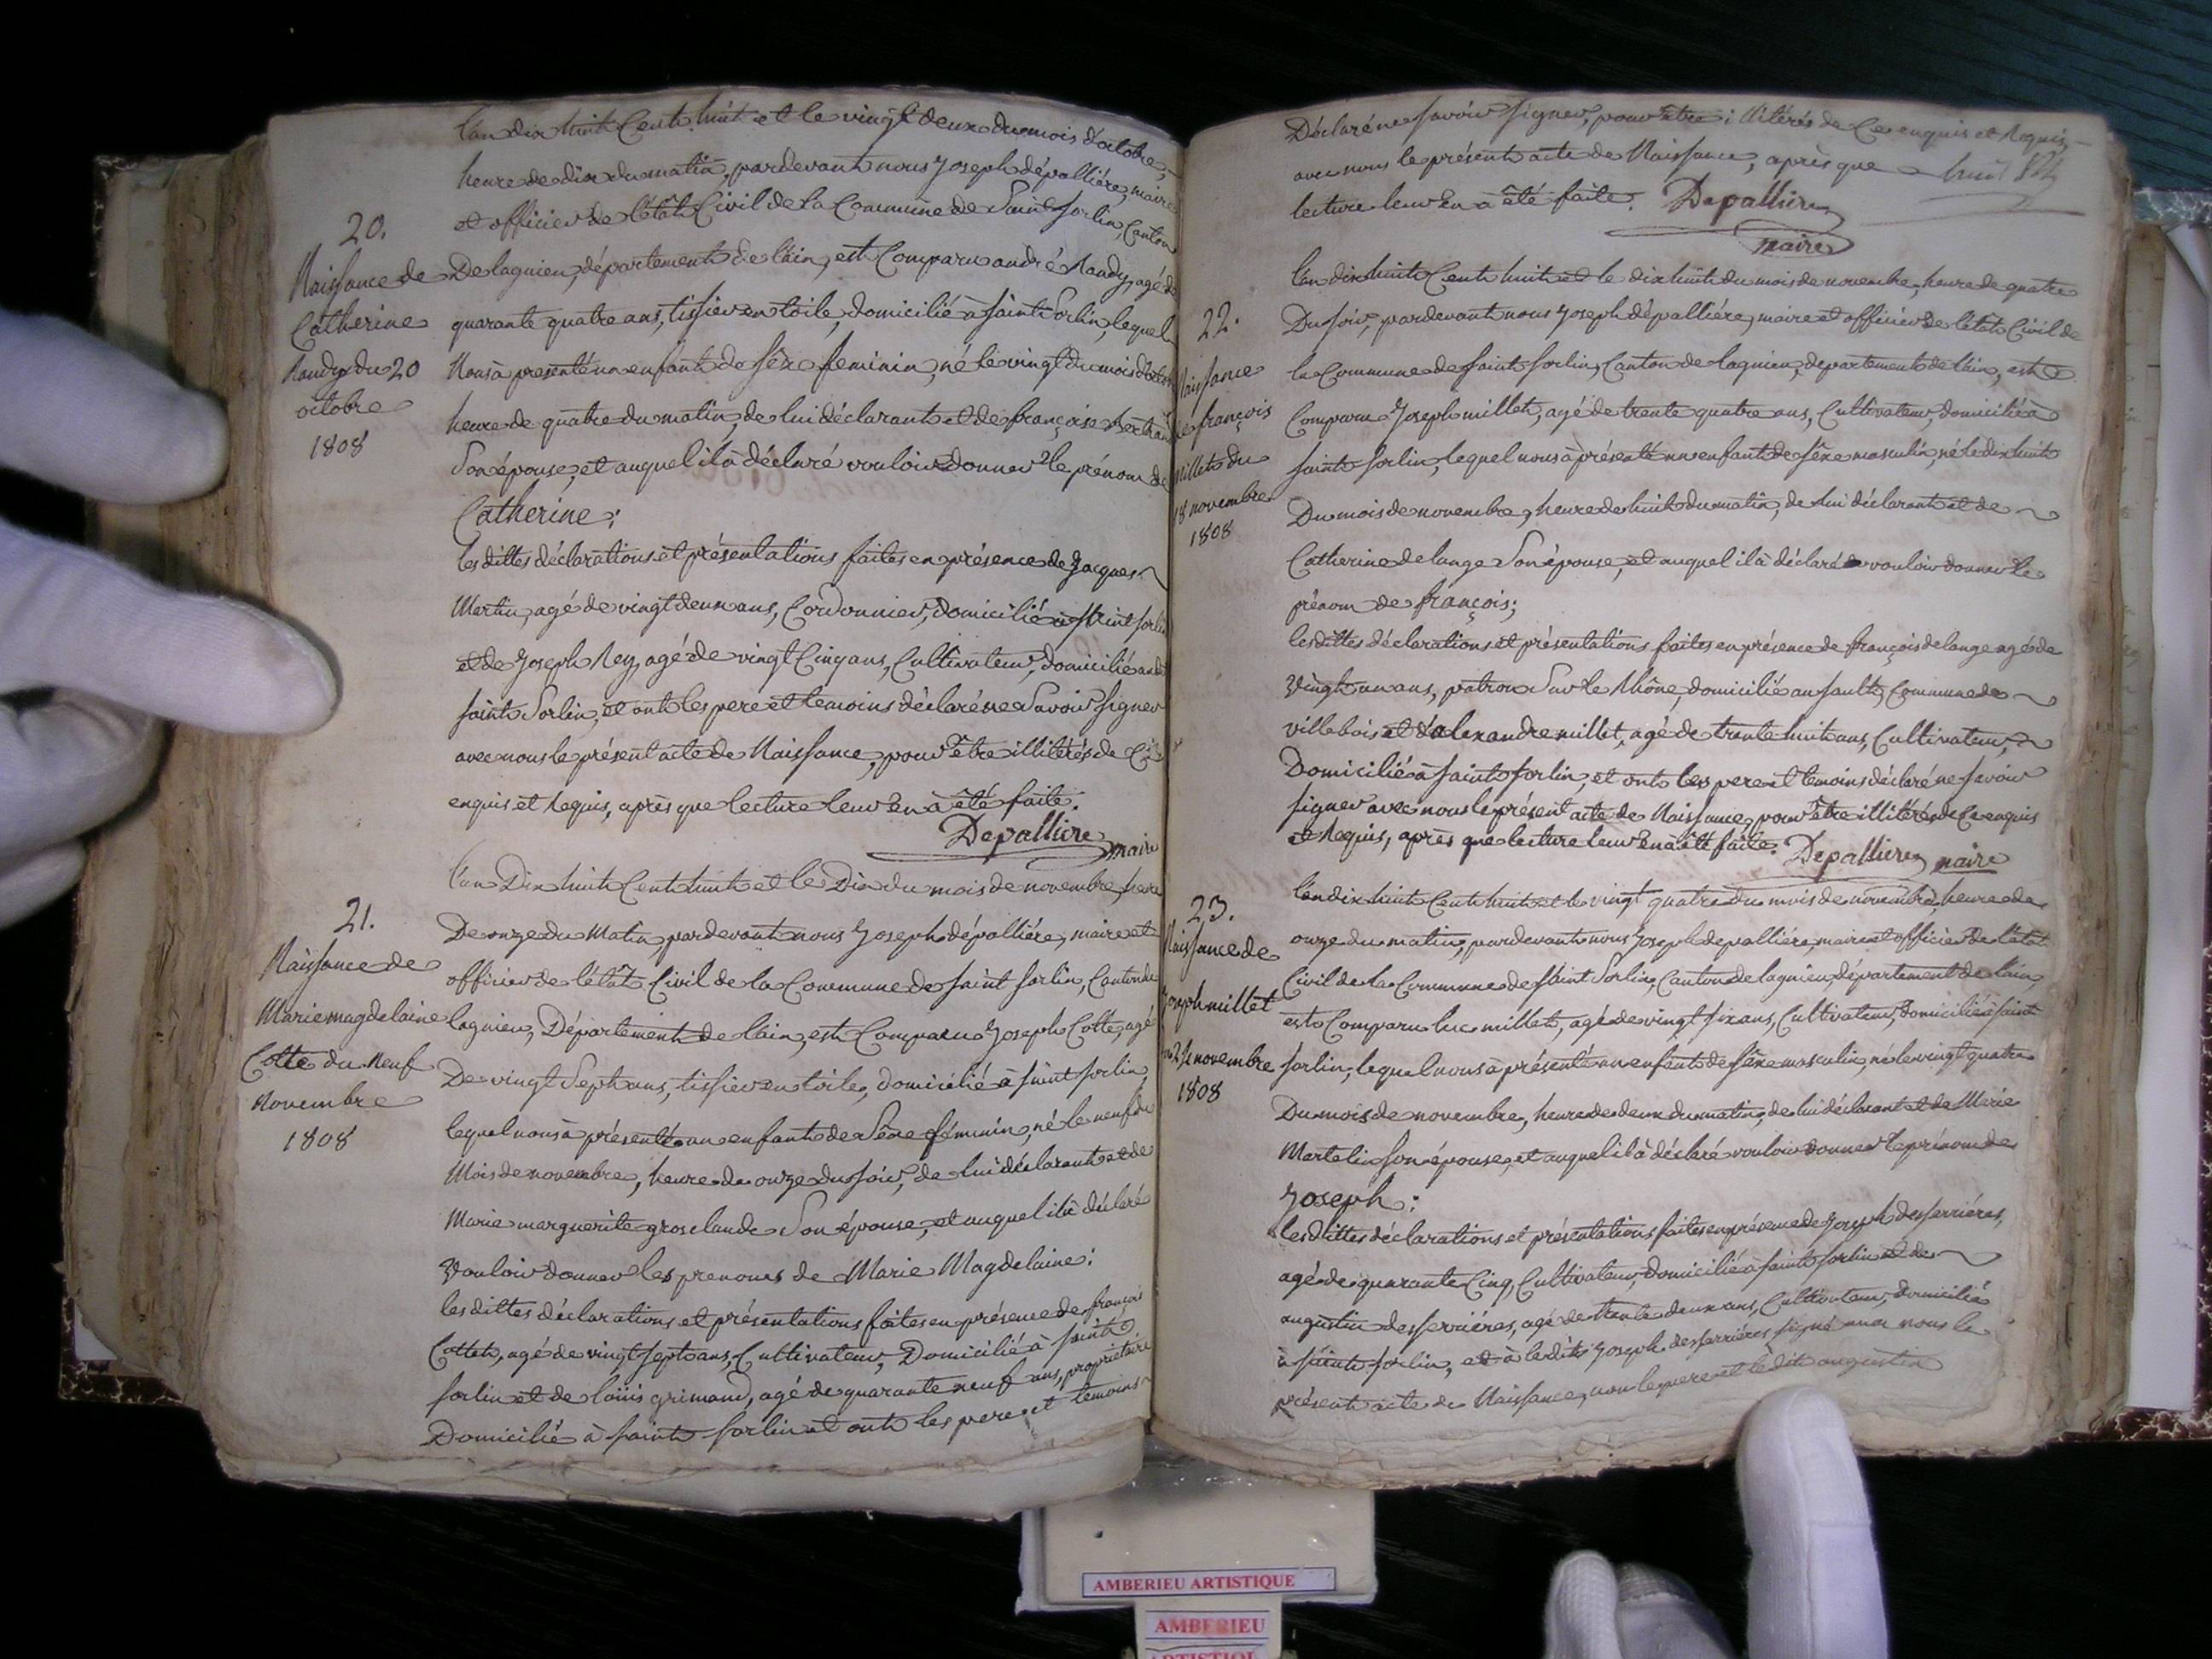 l'an dix huit cent huit et le vingt deux du mois d'octobre,
heure de dix du matin, pardevant nous Joseph dépalliére, maire
et officier de l'état Civil de la Commune de Saint Sorlin, Canton
20.
Naissance de
Catherine
Naudy du 20
octobre
1808
De lagnieu, département de l'ain, est Comparu andré Naudy, agé de
quarante quatre ans, tissier en toile, domicilié à saint Sorlin, lequel
Nous à presenté un enfant de sêxe feminin, né le vingt du mois d'octobre
heure de quatre du matin, de lui déclarant et de françoise
Son épouse, et auquel il à déclaré vouloir donner le prénom de
Catherine;
les dittes déclarations et présentations faites en présence de Jacques
Martin, agé de vingt deux ans, Cordonnier, domicilié à Saint sorlin
et de Joseph Rey, agé de vingt Cinq ans, Cultivateur, domicilié audit
saint Sorlin, et ont les pere et temoins déclaré ne Savoir signer
avec nous le présent acte de Naissance, pour être illitérés de Ce
enquis et Requis, après que lecture leur En à été faite.
Depalliere maire
21.
Naissance de
Marie magdelaine
Cotte du Neuf
Novembre
1808
l'an Dix huit Cent huit et le Dix du mois de novembre, heure
De onze du Matin, pardevant nous Joseph dépalliére, maire et
officier de l'état Civil de la Commune de saint sorlin, Canton de
lagnieu, Département de l'ain, est Comparu Joseph Cotte, agé
De vingt Sept ans, tissier en toile, domicilié à saint sorlin
lequel nous à présenté un enfant de Sêxe féminin, né le neuf du
Mois de novembre, heure de onze du soir, de lui déclarant et de
Marie marguerite grosclaude Son épouse, et auquel il à déclaré
Vouloir donner les prenoms de Marie Magdelaine;
les dittes déclarations et présentations faites en présence de françois
Cottet, agé de vingt sept ans, Cultivateur, Domicilié à saint
sorlin et de loüis grimand, agé de quarante neuf ans, propriétaire
Domicilié à saint sorlin et ont les pere et temoins
Déclaré ne savoir signer, pour être illitérés de Ce enquis et Requis
avec nous le présent acte de Naissance, après que
lecture leur En à été faite. Depalliere
maire
22.
Naissance
de françois
millet du
18 novembre
1808
l'an dix huit Cent huit et le dix huit du mois de novembre, heure de quatre
Du soir, pardevant nous Joseph dépalliére, maire et officier de l'état Civil de
la Commune de saint sorlin, Canton de lagnieu, departement de l'ain, est
Comparu Joseph millet, agé de trente quatre ans, Cultivateur, domicilié à
saint sorlin, lequel nous à présenté un enfant de sêxe masculin, né le dix huit
Du mois de novembre, heure de huit du matin, de lui déclarant et de
Catherine delange Son épouse, et auquel il à déclaré vouloir donner le
prénom de françois;
les dittes déclarations et présentations faites en présence de françois delange agé de
Vingt un ans, patron Sur le Rhône, domicilié au sault, Commune de
villebois et d'alexandre millet, agé de trente huit ans, Cultivateur,
Domicilié à saint sorlin, et ont les pere et temoins déclaré ne savoir
signer avec nous le présent acte de Naissance, pour être illitérés de Ce enquis
et Requis, après que lecture leur En à été faite. Depalliere maire
23.
Naissance de
Joseph millet
du 24 novembre
1808
l'an dix huit Cent huit et le vingt quatre du mois de novembre, heure de
onze du matin, pardevant nous Joseph depalliére, maire et officier de l'état
Civil de la Commune de Saint Sorlin, Canton de lagnieu, département de l'ain
est Comparu luc millet, agé de vingt six ans, Cultivateur, domicilié à saint
sorlin, lequel nous à présenté un enfant de sêxe masculin, né le vingt quatre
Du mois de novembre, heure de deux du matin, de lui déclarant et de Marie
Martelin son épouse, et auquel il à déclaré vouloir donner le prénom de
Joseph;
les dittes déclarations et présentations faites en présence de Joseph desserriéres,
agé de quarante Cinq, Cultivateur, domicilié à saint sorlin et de
augustin desserriéres, agé de trente deux ans, Cultivateur, domicilié
à saint sorlin, et à le dit Joseph desserriéres signé avec nous le
présent acte de Naissance, non le pere et le dit augustin
AMBERIEU ARTISTIQUE
AMBERIEU
ARTISTIQUE